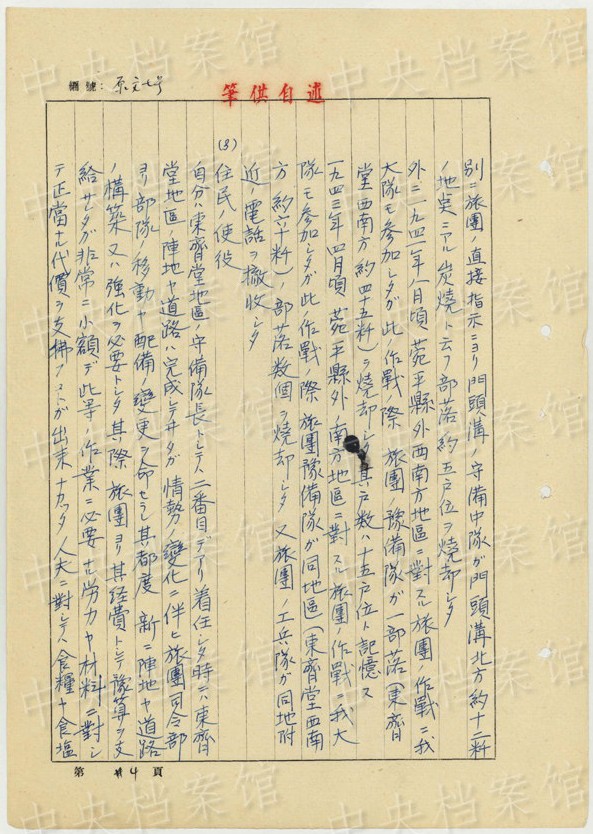 中央档案馆
編號：原文七号
筆供自述
別ニ旅團ノ直接指示ニヨリ門頭溝ノ守備中隊ガ門頭溝北方約十二粁
ノ地点ニアル炭焼ト云フ部落約五戸位ヲ焼却シタ
外ニ一九四二年八月頃菀平縣外西南方地區ニ對スル旅團ノ作戰ニ我
大隊モ参加シタガ此ノ作戰ノ際 旅團ノ豫備隊ガ一部落（東齊
堂西南方約四十五粁）ヲ焼却シタ其戸数ハ十五戸位ト記憶ス
一九四三年四月頃菀平縣外ノ南方地區ニ對スル旅團ノ作戰ニ我大
隊モ参加シタガ此ノ作戰ノ際 旅團豫備隊ガ同地區（東齊堂西南
方約六十粁）ノ部落数個ヲ焼却シタ 又旅團ノ工兵隊ガ同地附
近ノ電話ヲ撤收シタ
(3) 住民ノ使役
自分ハ東齊堂地區ノ守備隊長トシテハ二番目デアリ着任シタ時ニハ東齊
堂地區ノ陣地ヤ道路ハ完成シテ井タガ 情勢ノ變化ニ伴ヒ旅團司令部
ヨリ部隊ノ移動ヤ配備ノ變更ヲ命セラレ其都度 新ニ陣地ヤ道路
ノ構築 又ハ強化ヲ必要トシタ 其際 旅團ヨリ其経費トシテ豫算ヲ支
給サレタガ非常ニ小額デ此等ノ作業ニ必要ナル労力ヤ材料ニ對シ
テ正當ナル代價ヲ支拂フコトガ出来ナカッタ 人夫ニ對シテハ食糧ヤ食塩
第 4 頁